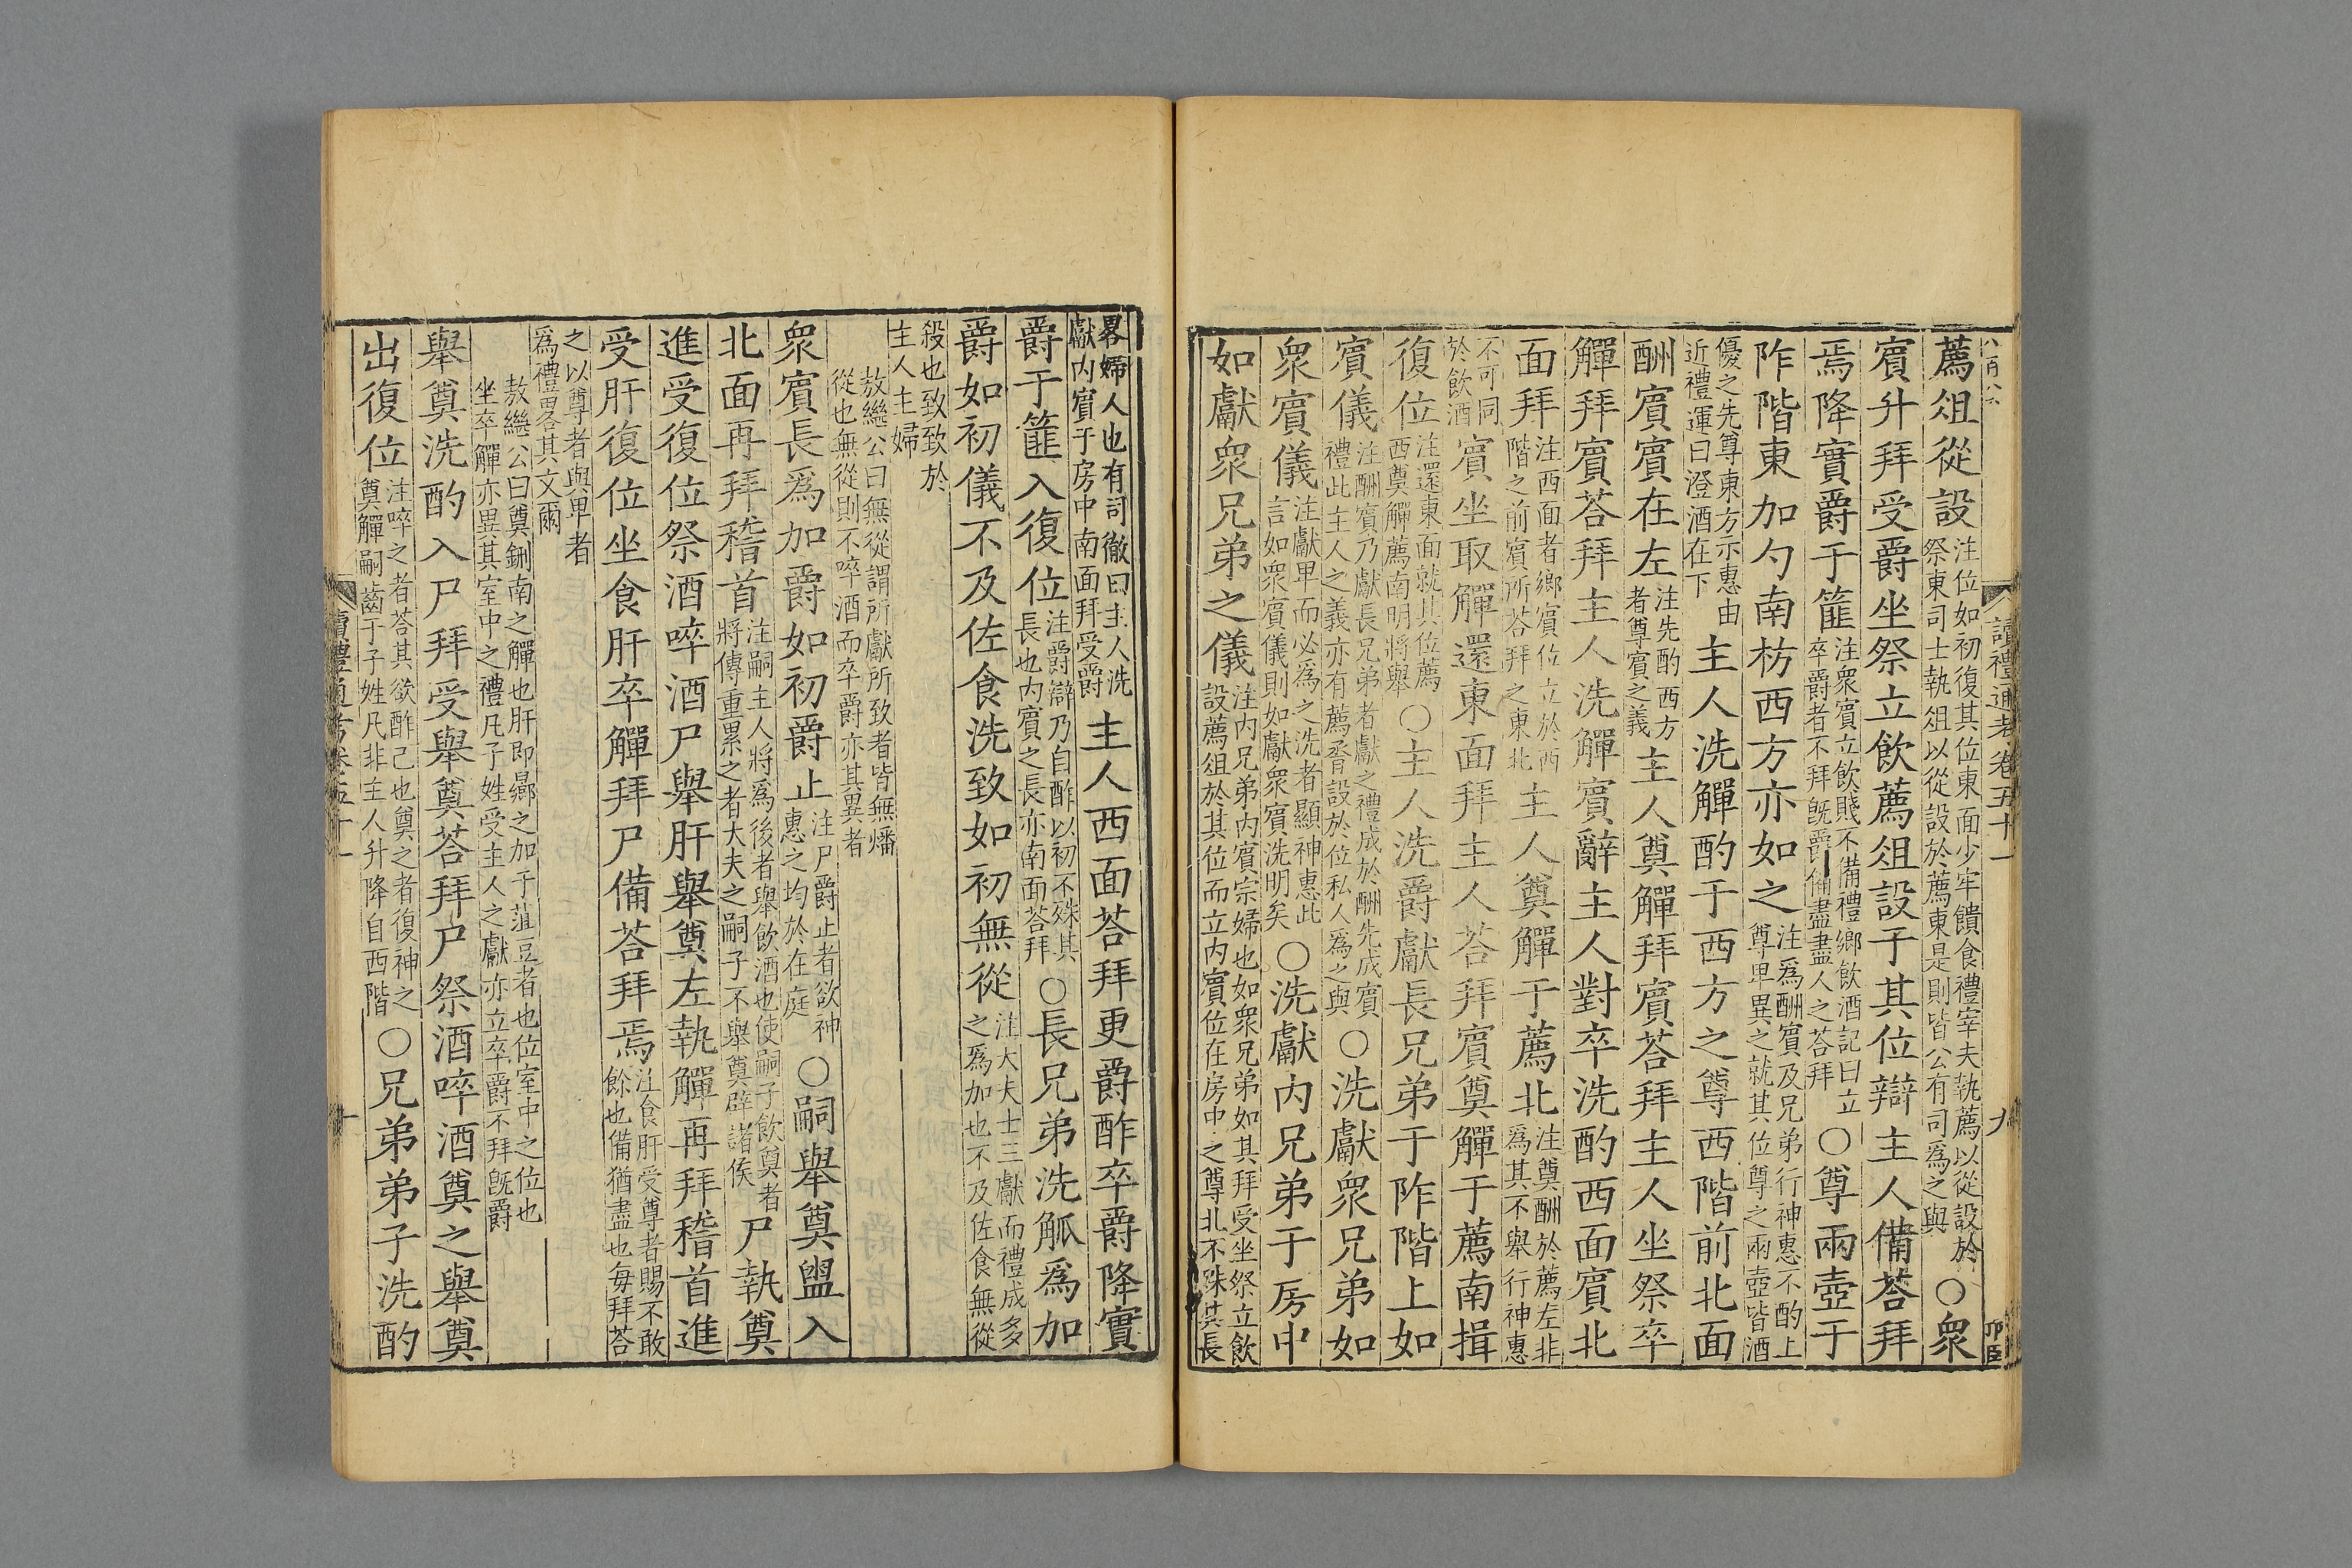 讀禮通考卷五十一 九
薦俎從設注位如初復其位東面少牢饋食禮宰夫執薦以從設於祭東司士執俎以從設於薦東是則皆公有司爲之與○衆
賓升拜受爵坐祭立飲薦俎設于其位辯主人備荅拜
焉降實爵于篚注衆賓立飲賤不備禮鄉飲酒記曰立卒爵者不拜旣爵備盡盡人之荅拜○尊兩壺于
阼階東加勺南枋西方亦如之注爲酬賓及兄弟行神惠不酌上尊卑異之就其位尊之兩壺皆酒
優之先尊東方示惠由近禮運曰澄酒在下主人洗觶酌于西方之尊西階前北面
酬賓賓在左注先酌西方者尊賓之義主人奠觶拜賓荅拜主人坐祭卒
觶拜賓荅拜主人洗觶賓辭主人對卒洗酌西面賓北
面拜注西面者鄉賓位立於西階之前賓所荅拜之東北主人奠觶于薦北注奠酬於薦左非爲其不舉行神惠
不可同於飲酒賓坐取觶還東面拜主人荅拜賓奠觶于薦南揖
復位注還東面就其位薦西奠觶薦南明將舉○主人洗爵獻長兄弟于阼階上如
賓儀注酬賓乃獻長兄弟者獻之禮成於酬先成賓禮此主人之義亦有薦脀設於位私人爲之與○洗獻衆兄弟如
衆賓儀注獻卑而必爲之洗者顯神惠此言如衆賓儀則如獻衆賓洗明矣○洗獻内兄弟于房中
如獻衆兄弟之儀注内兄弟内賓宗婦也如衆兄弟如其拜受坐祭立飲設薦俎於其位而立内賓位在房中之尊北不殊其長
畧婦人也有司徹曰主人洗獻内賓于房中南面拜受爵主人西面荅拜更爵酢卒爵降實
爵于篚入復位注爵辯乃自酢以初不殊其長也内賓之長亦南面荅拜○長兄弟洗觚爲加
爵如初儀不及佐食洗致如初無從注大夫士三獻而禮成多之爲加也不及佐食無從
殺也致致於主人主婦
敖繼公曰無從謂所獻所致者皆無燔從也無從則不啐酒而卒爵亦其異者
衆賓長爲加爵如初爵止注尸爵止者欲神惠之均於在庭○嗣舉奠盥入
北面再拜稽首注嗣主人將爲後者舉飲酒也使嗣子飲奠者將傳重累之者大夫之嗣子不舉奠辟諸侯尸執奠
進受復位祭酒啐酒尸舉肝舉奠左執觶再拜稽首進
受肝復位坐食肝卒觶拜尸備荅拜焉注食肝受尊者賜不敢餘也備猶盡也每拜荅
之以尊者與卑者爲禮畧其文爾
敖繼公曰奠鉶南之觶也肝即曏之加于菹豆者也位室中之位也坐卒觶亦異其室中之禮凡子姓受主人之獻亦立卒爵不拜旣爵
舉奠洗酌入尸拜受舉奠荅拜尸祭酒啐酒奠之舉奠
出復位注啐之者荅其欲酢己也奠之者復神之奠觶嗣齒于子姓凡非主人升降自西階○兄弟弟子洗酌
讀禮通考卷五十一 十